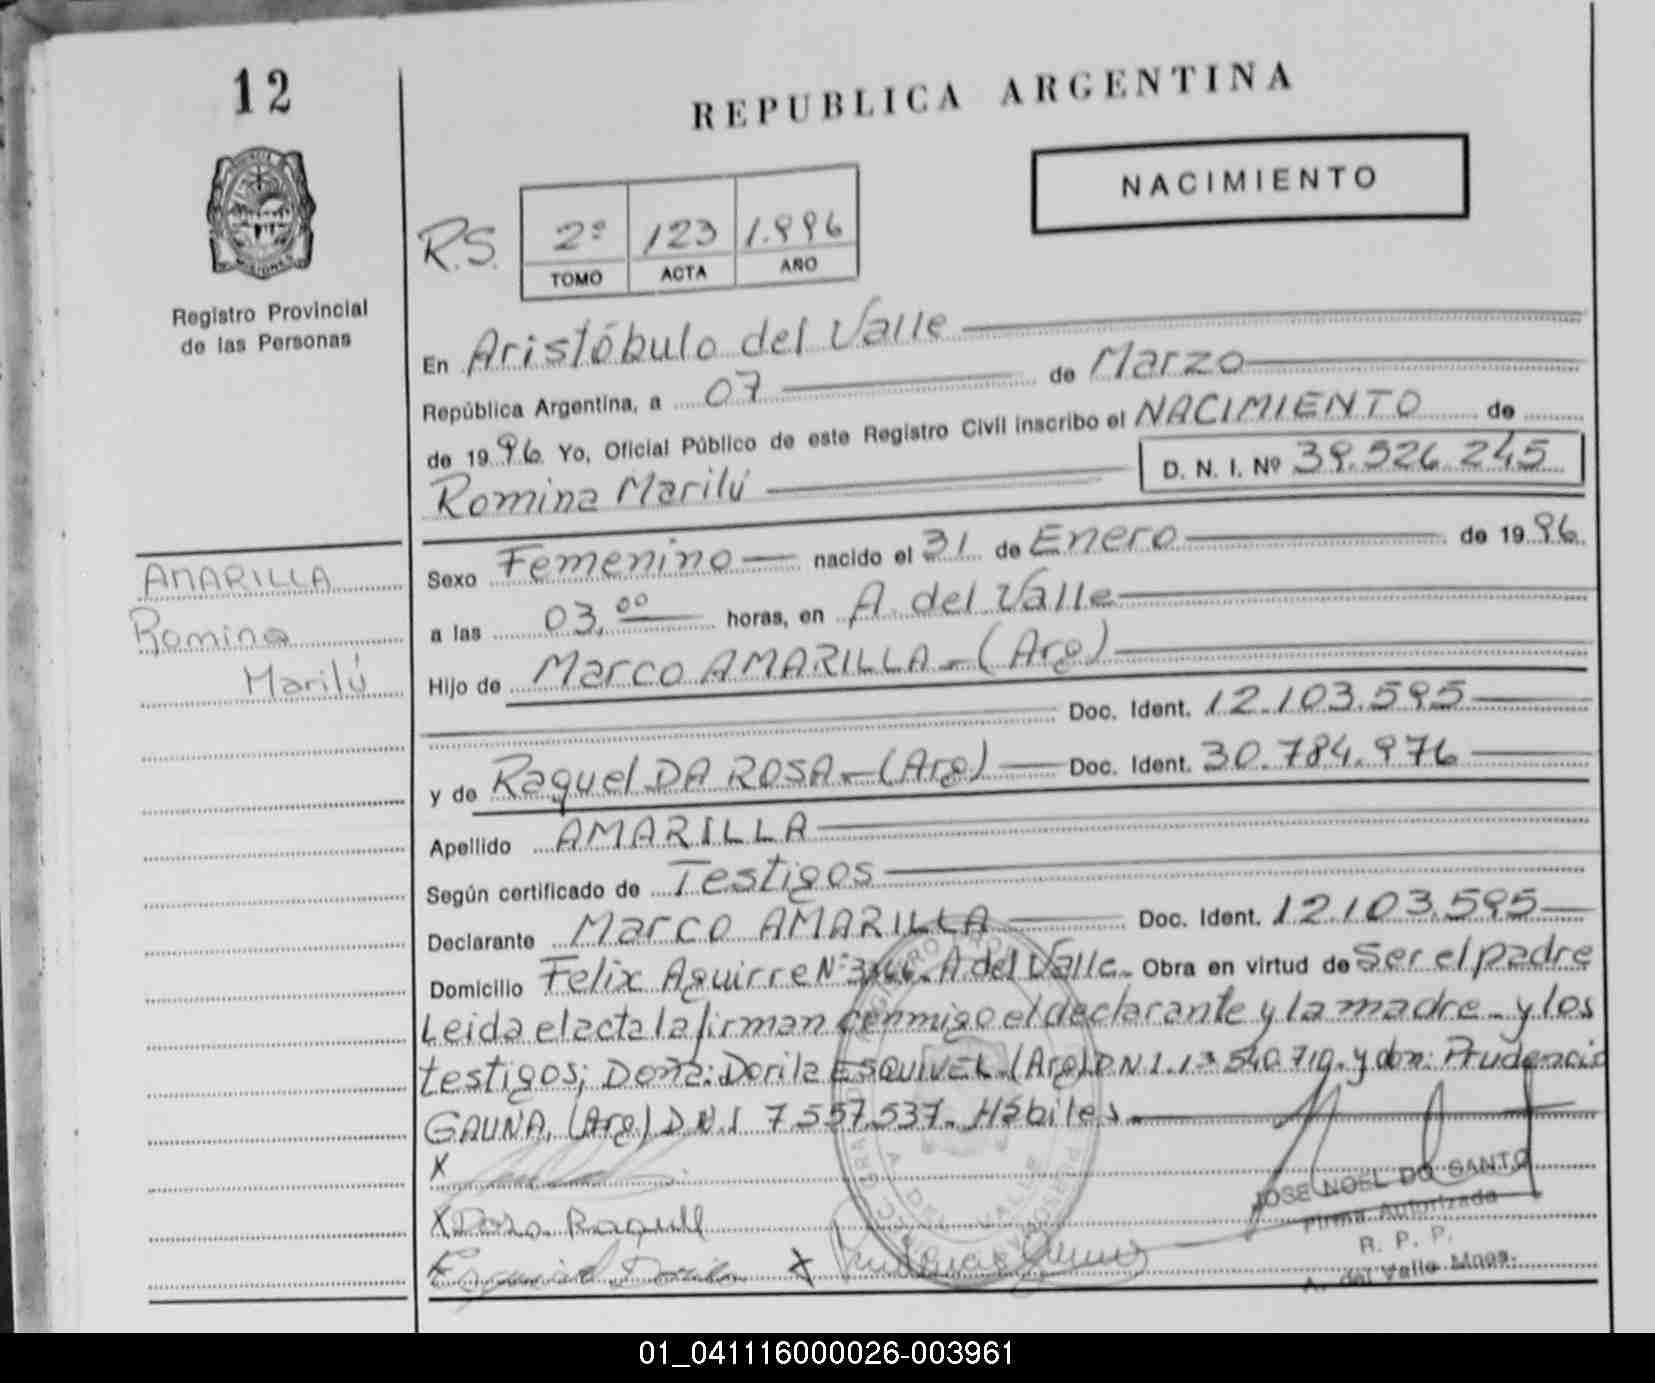 12
REPUBLICA ARGENTINA
NACIMIENTO
R.S.
2º 123 1.996
TOMO ACTA AÑO
Registro Provincial
de las Personas
En Aristóbulo del Valle
República Argentina, a 07 de Marzo
de 1996 Yo, Oficial Público de este Registro Civil inscribo el NACIMIENTO de
Romina Marilú D. N. I. Nº 39.526.245
AMARILLA
Romina
Marilú
Sexo Femenino nacido el 31 de Enero de 1996.
a las 03,00 horas, en A. del Valle
Hijo de Marco AMARILLA - (Arg)
Doc. Ident. 12.103.595
y de Raquel DA ROSA - (Arg) Doc. Ident. 30.784.976
Apellido AMARILLA
Según certificado de Testigos
Declarante Marco AMARILLA Doc. Ident. 12.103.595
Domicilio Felix Aguirre Nº A del Valle - Obra en virtud de Ser el padre
Leida el acta la firman conmigo el declarante y la madre - y los
testigos; Doña: Dorila ESQUIVEL - (Arg) D N I. y don: Prudencio
GAUNA, (Arg) D.N.I 7.557.537. Hábiles
X
X Raquel
Esquivel Dorila X
JOSE NOEL DO SANTO
Firma Autorizada
R. P. P.
A. del Valle Mnes.
01_041116000026-003961